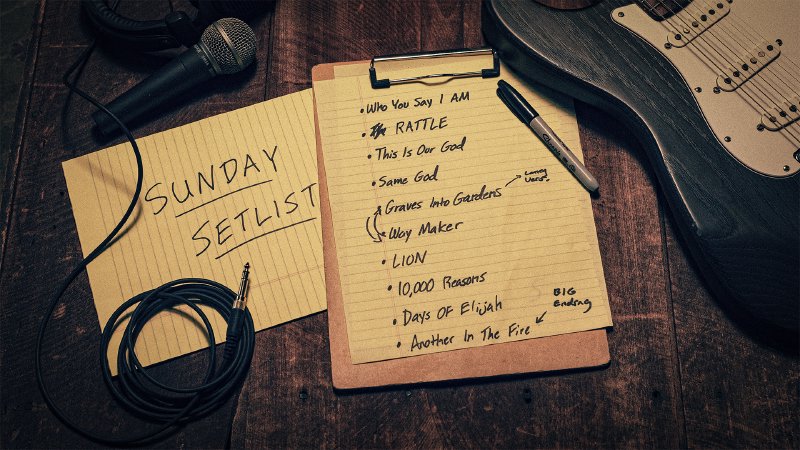 SUNDAY
SETLIST
• Who You Say I AM
• RATTLE
• This Is Our God
• Same God
• Graves Into Gardens
• Way Maker
• LION
• 10,000 Reasons
• Days Of Elijah
• Another In The Fire
BIG
Ending